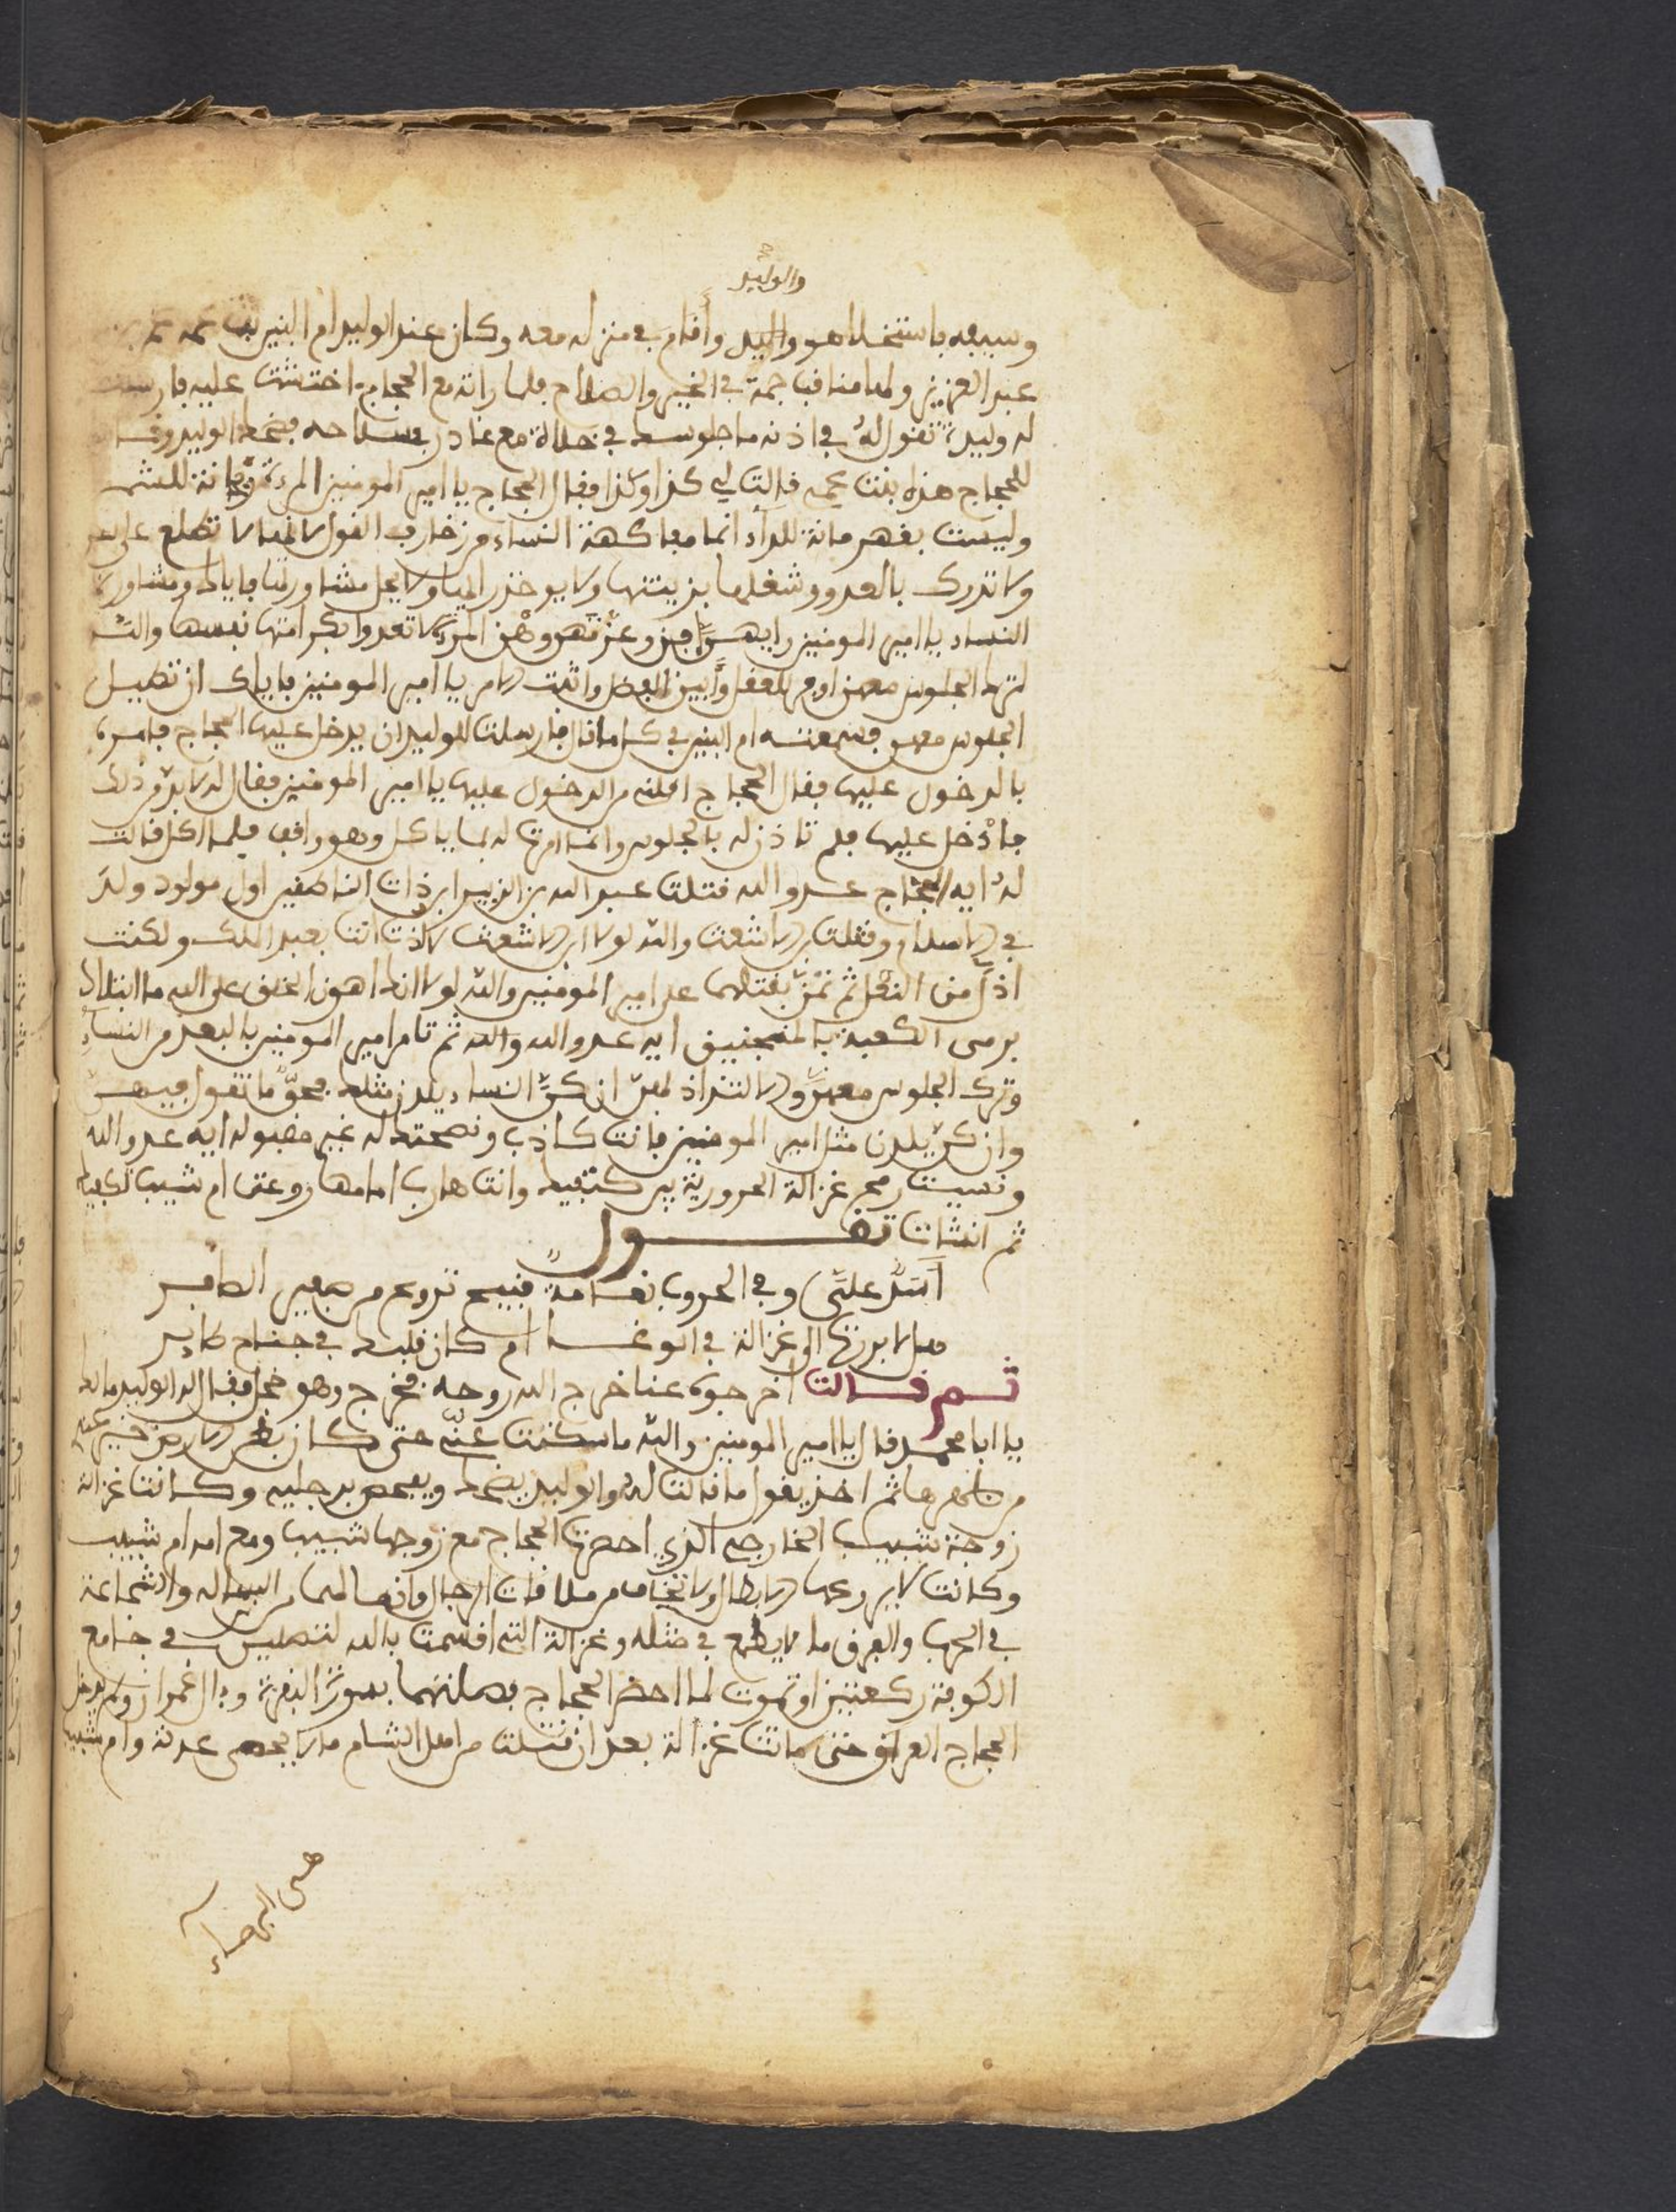 والوليد
وسيفه باستخلا هو والوليد وأقام في منزله معه وكان عند الوليد ام البنين بنت عمه عمر بن
عبد العزيز ولها مناقب جمة في الخير والصلاح فلما راته مع الحجاج اختشت عليه فارسلت
له وليدة تقول له في اذنه ما جلوسك في خلالة مع غادر في سلاحه فضحك الوليد وقال
للحجاج هذه بنت عمي قالت لي كذا وكذا فقال الحجاج يا امير المومنين المرءة ريحانة للشم
وليست بقهرمانة للدار انما مفاكهة النساء من زخارف القول لا غيها لا تطلع على سر
ولا تدرك بالعدو وشغلها بزينتها ولا يوخذ رايها ولا يحل مشاورتها فاياك ومشاورة
النساء يا امير المومنين رايهن افن وعزمهن وهن المرءة لا تعدوا بكرامتها نفسها والتـ
لترك الجلوس معهن اوفر للعقل وأبين للفضل واثبت لامر يا امير المومنين فاياك ان تطيل
الجلوس معهن فسمعته ام البنين في كل ما قال فارسلت للوليد ان يدخل عليها الحجاج فامره
بالدخول عليها فقال الحجاج اقلني من الدخول عليها يا امير المومنين فقال له لا بد من ذلك
فادخل عليها فلم تاذن له بالجلوس وانما امرت له بما ياكل وهو واقف فلما اكل قالت
له ايه الحجاج عدو الله قتلت عبد الله بن الزبير ابن ذات النطاقين اول مولود ولد
في الاسلام وقتلت بن الاشعث والله لولا ابن الاشعث لاذت انت بعبد الملك ولكنت
اذل من النعل ثم تمن بقتلهما على امير المومنين والله لولا انك اهون الخلق على الله ما ابتلاك
برمي الكعبة بالمنجنيق ايه عدو الله والله ثم تامر امير المومنين بالبعد من النساء
وترك الجلوس معهن والالتذاذ بهن ان كن النساء يلدن مثلك فحق ما تقول فيهن
وان كن يلدن مثل امير المومنين فانت كاذب ونصحتك له غير مقبولة ايه عدو الله
ونسيت رمح غزالة الحرورية بين كتفيك وانت هارب امامها روعتى ام شبيب لكفيك
ثم انشات تقـــول
اسد علي وفي الحروب نعامة فتيخ تروع من صفير الطافر
هلا برزت الى غزالة في الوغى ام كان قلبك في جناح طاير
ثـم قـالت اخرجوه عنا اخرج الله روحه فخرج وهو خجل فقال له الوليد مالك
يا ابا محمد قال يا امير المومنين والله ما سكتت عني حتى كان بطن الارض خير عندي
من ظهرها ثم اخذ يقول ما قالت له والوليد يضحك ويفحص برجليه وكانت غزالة
زوجة شبيب الخارجي الذي احصرت الحجاج مع زوجها شبيب ومع امه ام شبيب
وكانت لا يروعها الابطال ولا تخاف من ملاقات الرجال وانها لهما من البسالة والشجاعة
في الحرب والعرف ما لا يطمع في مثله وغزالة التي اقسمت بالله لتصلين في جامع
الكوفة ركعتين او تموت لما احضر الحجاج فصلتهما بسورة البقرة وءال عمران ولم يدخل
الحجاج العراق حتى ماتت غزالة بعد ان قتلت من اهل الشام ما لا يحصى عدته وام شبيب